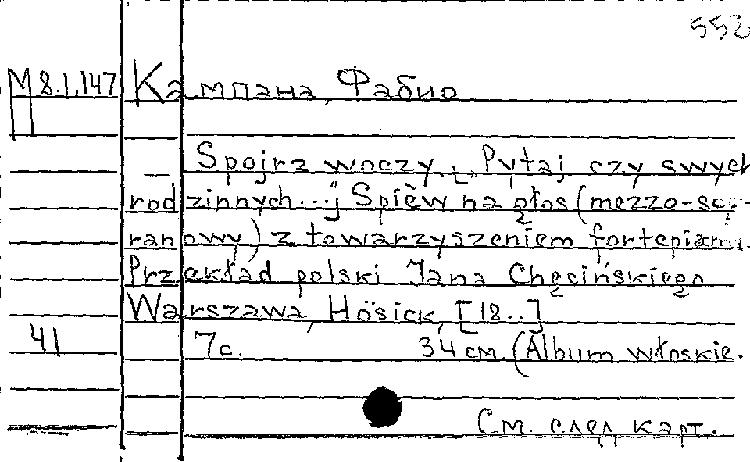 552
М 8.1.147 Кампана, Фабио
Spojrz w oczy. [„Pytaj czy swych
rodzinnych..."] Śpiew na głos (mezzo-sop-
ranowy) z towarzyszeniem fortepianu.
Przekład polski Jana Chęcińskiego
Warszawa, Hösick, [18..]
41 7с. 34 см. (Album włoskie.
См. след карт.